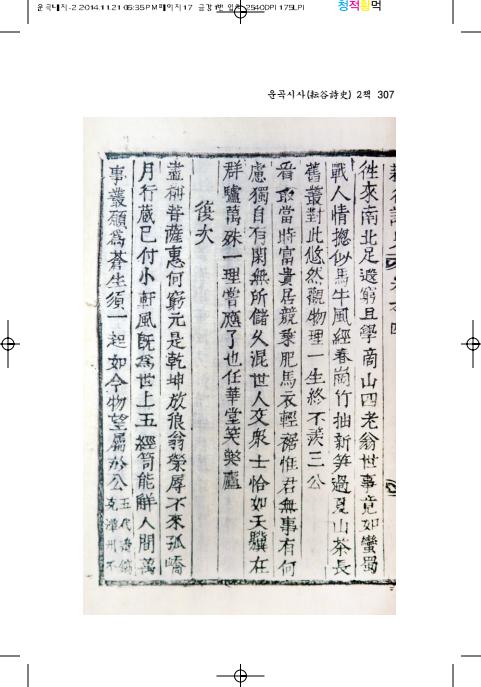 운곡내지-2 2014.11.21 05:35 PM 페이지17
청적황먹
운곡시사(耘谷詩史) 2책 307
徃來南北足遮窮且學商山四老翁世事竟如蠻蜀
戰人情揔似馬牛風經春崗竹抽新笋過夏山茶長
舊叢對此悠然觀物理一生終不羨三公
看取當時富貴居競乘肥馬衣輕裾惟君無事有何
慮獨自有閑無所儲久混世人交衆士恰如天驥在
群驢萬殊一理當應了也任華堂笑樊廬
後次
盡稱菩薩惠何窮元是乾坤放浪翁榮辱不來孤嶠
月行蔵已付小軒風旣爲世上五經笥能觧人間萬
事叢願爲蒼生須一起如今物望屬於公